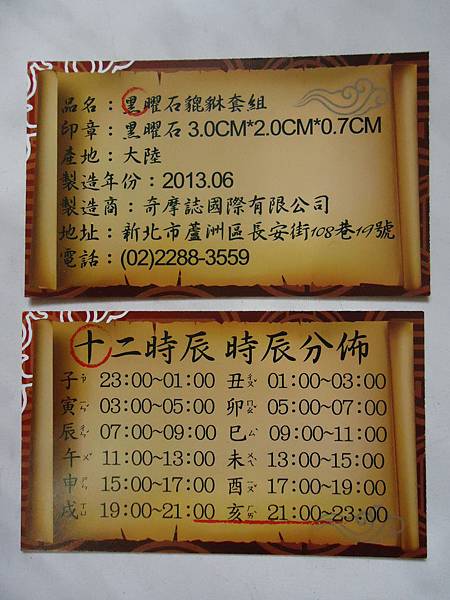 品名：黑曜石貔貅套組
印章：黑曜石 3.0CM*2.0CM*0.7CM
產地：大陸
製造年份：2013.06
製造商：奇摩誌國際有限公司
地址：新北市蘆洲區長安街108巷19號
電話：(02)2288-3559
十二時辰 時辰分佈
子ㄗˇ 23:00~01:00 丑ㄔㄡˇ 01:00~03:00
寅ㄧㄣˊ 03:00~05:00 卯ㄇㄠˇ 05:00~07:00
辰ㄔㄣˊ 07:00~09:00 巳ㄙˋ 09:00~11:00
午ㄨˇ 11:00~13:00 未ㄨㄟˋ 13:00~15:00
申ㄕㄣ 15:00~17:00 酉ㄧㄡˇ 17:00~19:00
戌ㄒㄩ 19:00~21:00 亥ㄏㄞˋ 21:00~23:00